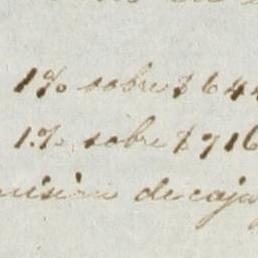 1% sobre $ 644
1.% sobre $ 716
misión de caja